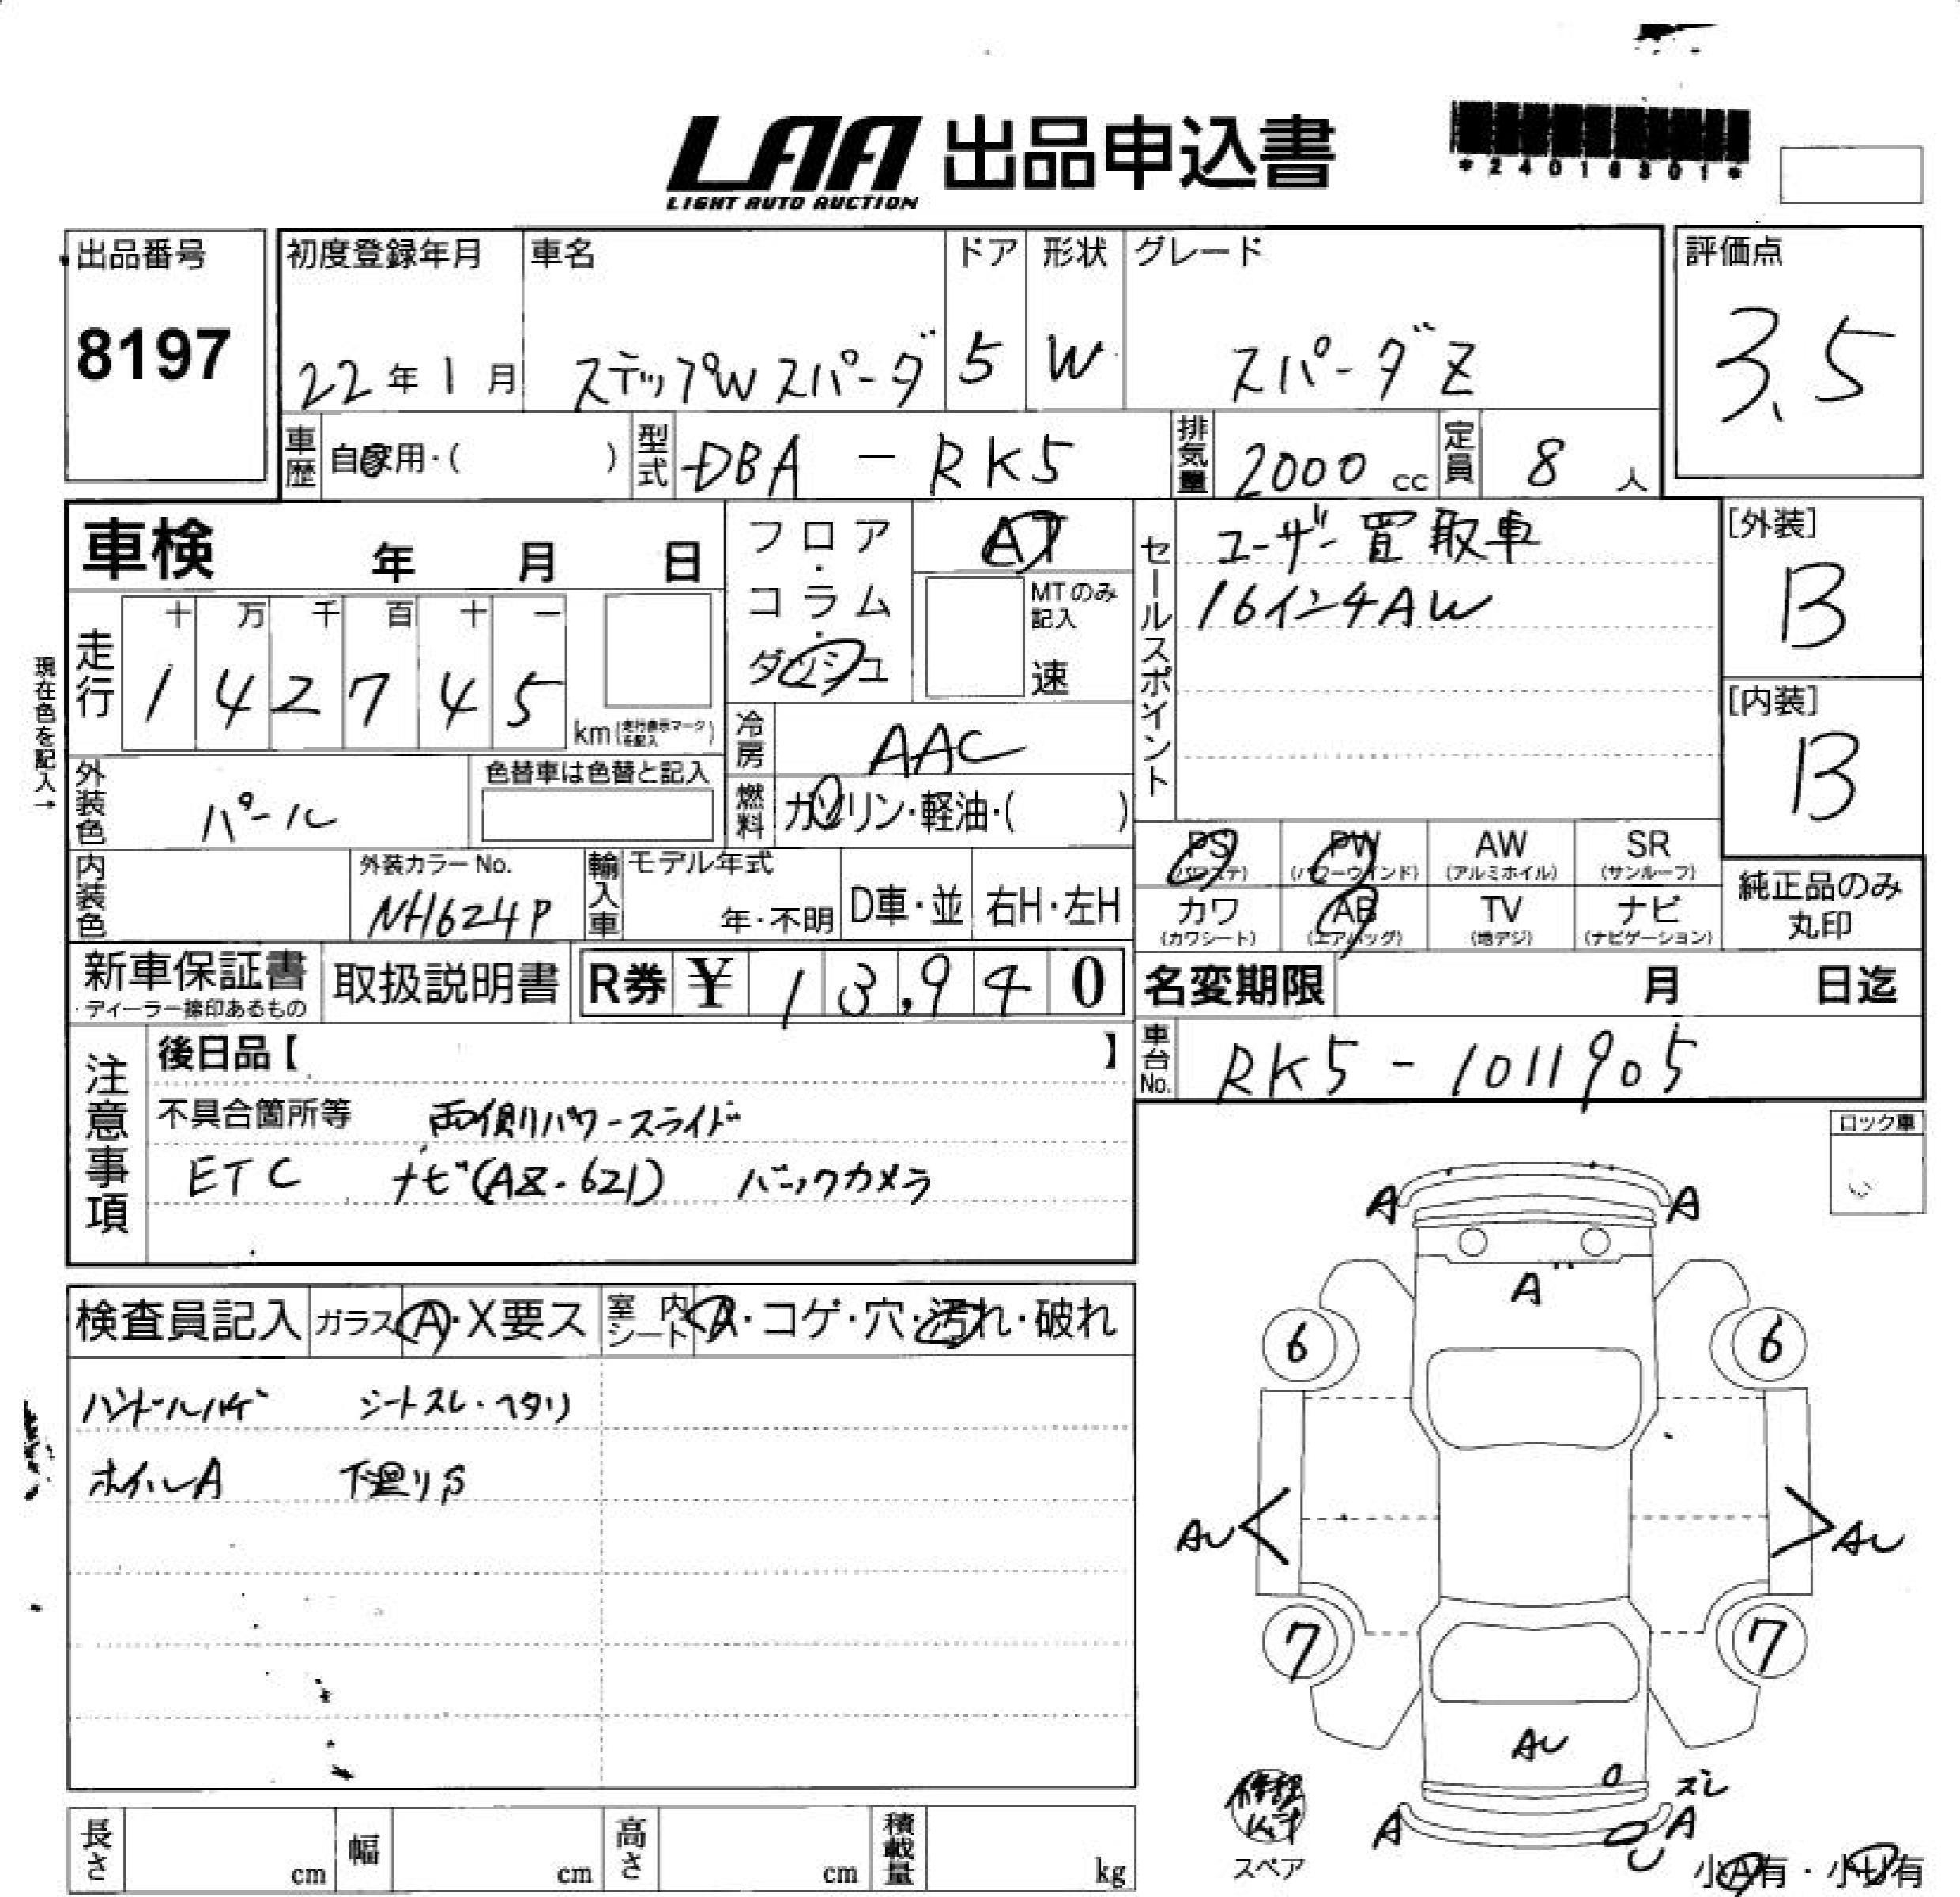 LAA 出品申込書
LIGHT AUTO AUCTION
*24016301*
出品番号 初度登録年月 車名 ドア 形状 グレード 評価点
8197 22年1月 ステップWスパーダ 5 W スパーダZ 3.5
車歴 自家用・( ) 型式 DBA - RK5 排気量 2000cc 定員 8人
車検 年 月 日
フロア・コラム・ダッシュ AT
MTのみ記入 速
セールスポイント
ユーザー買取車
16インチAW
[外装]
B
[内装]
B
現在色を記入→
走行 十 万 千 百 十 一
1 4 2 7 4 5 km (走行表示マークを記入)
冷房 AAC
外装色 パール 色替車は色替と記入
燃料 ガソリン・軽油・( )
PS (パワステ) PW (パワーウインド) AW (アルミホイル) SR (サンルーフ)
カワ (カワシート) AB (エアバッグ) TV (地デジ) ナビ (ナビゲーション)
純正品のみ丸印
内装色 外装カラーNo. NH624P 輸入車 モデル年式 年・不明 D車・並 右H・左H
新車保証書 ・ディーラー捺印あるもの 取扱説明書 R券 ¥ 13,940
名変期限 月 日迄
車台No. RK5-1011905
注意事項
後日品【 】
不具合箇所等 両側パワースライド
ETC ナビ(AZ-621) バックカメラ
ロック車
A A
A
6 6
検査員記入 ガラス A・X要ス 室内シート A・コゲ・穴・汚れ・破れ
ハンドルハゲ シートスレ・ヘタリ
ホイルA 下廻りS
AU AU
7 7
AU
修理キット
スペア
ズレ
A A
U
小A有・小U有
長さ cm 幅 cm 高さ cm 積載量 kg